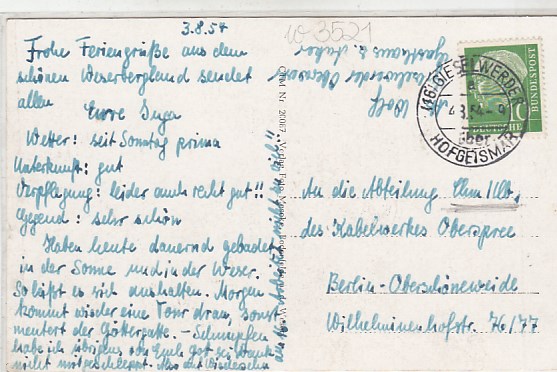 3.8.54
Frohe Feriengrüße aus dem
schönen Weserbergland sendet
allen
Eure Inga
Wetter: seit Sonntag prima
Unterkunft: gut
Verpflegung: leider auch recht gut!!
Gegend: sehr schön
Haben heute dauernd gebadet
in der Sonne und in der Weser.
So läßt es sich aushalten. Morgen
kommt wieder eine Tour dran, sonst
mentert der Göttergatte. - Schnupfen
habe ich übrigens von Euch Gott sei Dank
nicht mitgeschleppt. Also auf Wiedersehn
w 3521
Wolf
Gasthaus z. Anker
Nr. 2067
(16) GIESELWERDER
4.8.54
über
HOFGEISMAR
DEUTSCHE BUNDESPOST
10
An die Abteilung
des Kabelwerkes Oberspree
Berlin-Oberschöneweide
Wilhelminenhofstr. 76/77